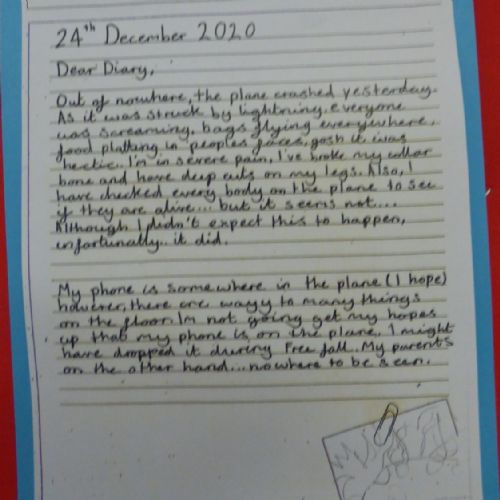 24th December 2020
Dear Diary,
Out of nowhere, the plane crashed yesterday.
As it was struck by lightning, everyone
was screaming, bags flying everywhere,
food platting in peoples faces, gosh it was
hectic. I'm in severe pain, I've broke my collar
bone and have deep cuts on my legs. Also, I
have checked every body on the plane to see
if they are alive... but it seems not...
Although I didn't expect this to happen,
unfortunally.. it did.
My phone is somewhere in the plane (I hope)
however, there are wayy to many things
on the floor. Im not going get my hopes
up that my phone is on the plane, I might
have dropped it during free fall. My parents
on the other hand... nowhere to be seen.